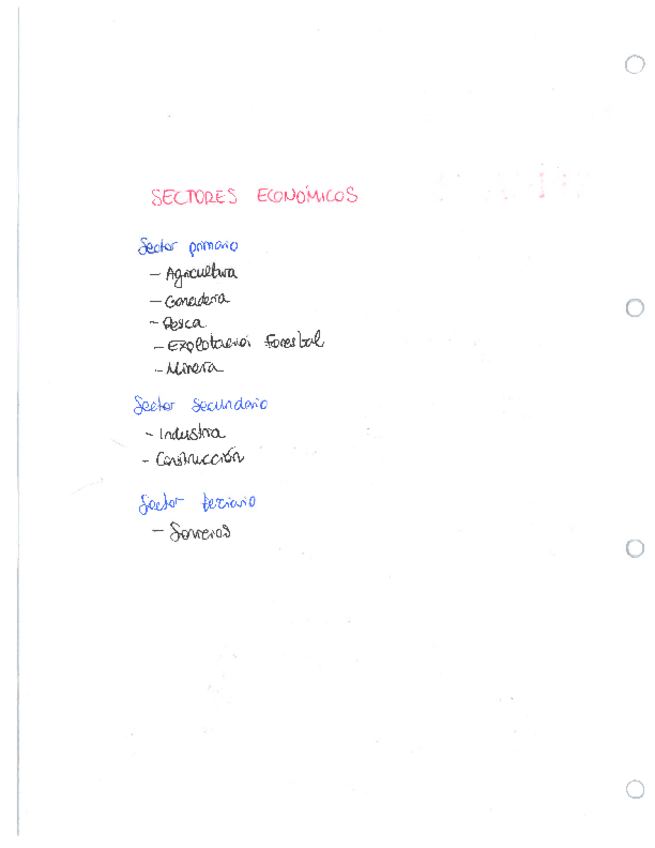 SECTORES ECONÓMICOS
Sector primario
- Agricultura
- Ganadería
- Pesca
- Explotación forestal
- Minería
Sector secundario
- Industria
- Construcción
Sector terciario
- Servicios